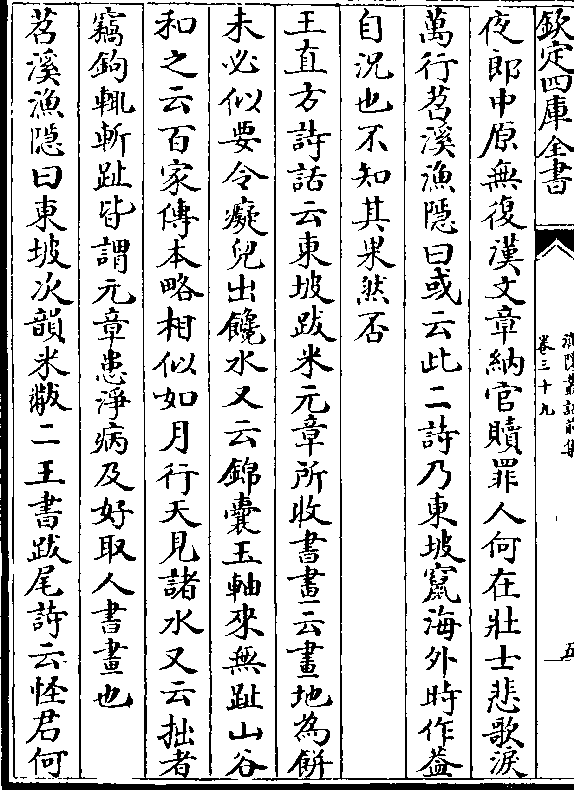 欽定四庫全書
漁隱叢話前集
卷三十九
五
夜郎中原無復漢文章納官贖罪人何在壯士悲歌淚
萬行苕溪漁隱曰或云此二詩乃東坡竄海外時作葢
自況也不知其果然否
王直方詩話云東坡跋米元章所收書畫云畫地為餅
未必似要令癡兒出饞水又云錦囊玉軸來無趾山谷
和之云百家傳本略相似如月行天見諸水又云拙者
竊鉤輒斬趾皆謂元章患淨病及好取人書畫也
苕溪漁隱曰東坡次韻米黻二王書跋尾詩云怪君何